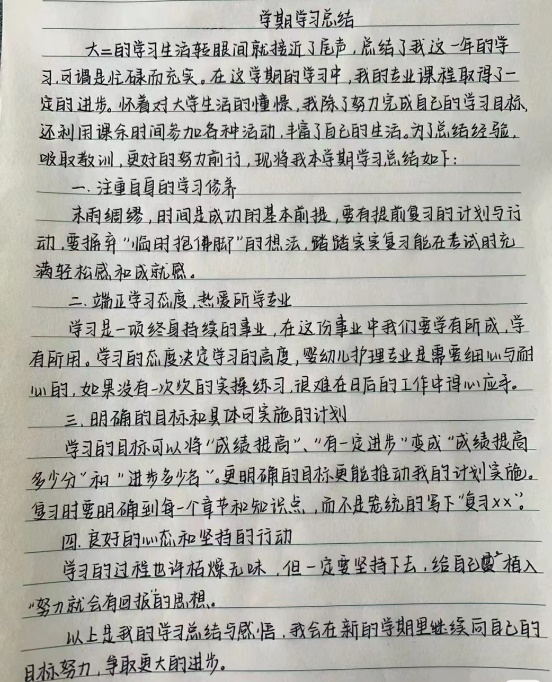 学期学习总结
大二的学习生活轻眼间就接近了尾声，总结了我这一年的学
习，可谓是忙碌而充实。在这学期的学习中，我的专业课程取得了一
定的进步。怀着对大学生活的憧憬，我除了努力完成自己的学习目标，
还利用课余时间参加各种活动，丰富了自己的生活。为了总结经验，
吸取教训，更好的努力前行，现将我本学期学习总结如下：
一、注重自身的学习修养
未雨绸缪，时间是成功的基本前提，要有提前复习的计划与行
动，要摒弃“临时抱佛脚”的想法，踏踏实实复习能在考试时充
满轻松感和成就感。
二、端正学习态度，热爱所学专业
学习是一项终身持续的事业，在这份事业中我们要学有所成，学
有所用。学习的态度决定学习的高度，婴幼儿护理专业是需要细心与耐
心的，如果没有一次次的实操练习，很难在日后的工作中得心应手。
三、明确的目标和具体可实施的计划
学习的目标可以将“成绩提高”、“有一定进步”变成“成绩提高
多少分”和“进步多少名”。更明确的目标更能推动我的计划实施。
复习时要明确到每一个章节和知识点，而不是笼统的写下“复习xx”。
四、良好的心态和坚持的行动
学习的过程也许枯燥无味，但一定要坚持下去，给自己植入
“努力就会有回报”的思想。
以上是我的学习总结与感悟，我会在新的学期里继续向自己的
目标努力，争取更大的进步。